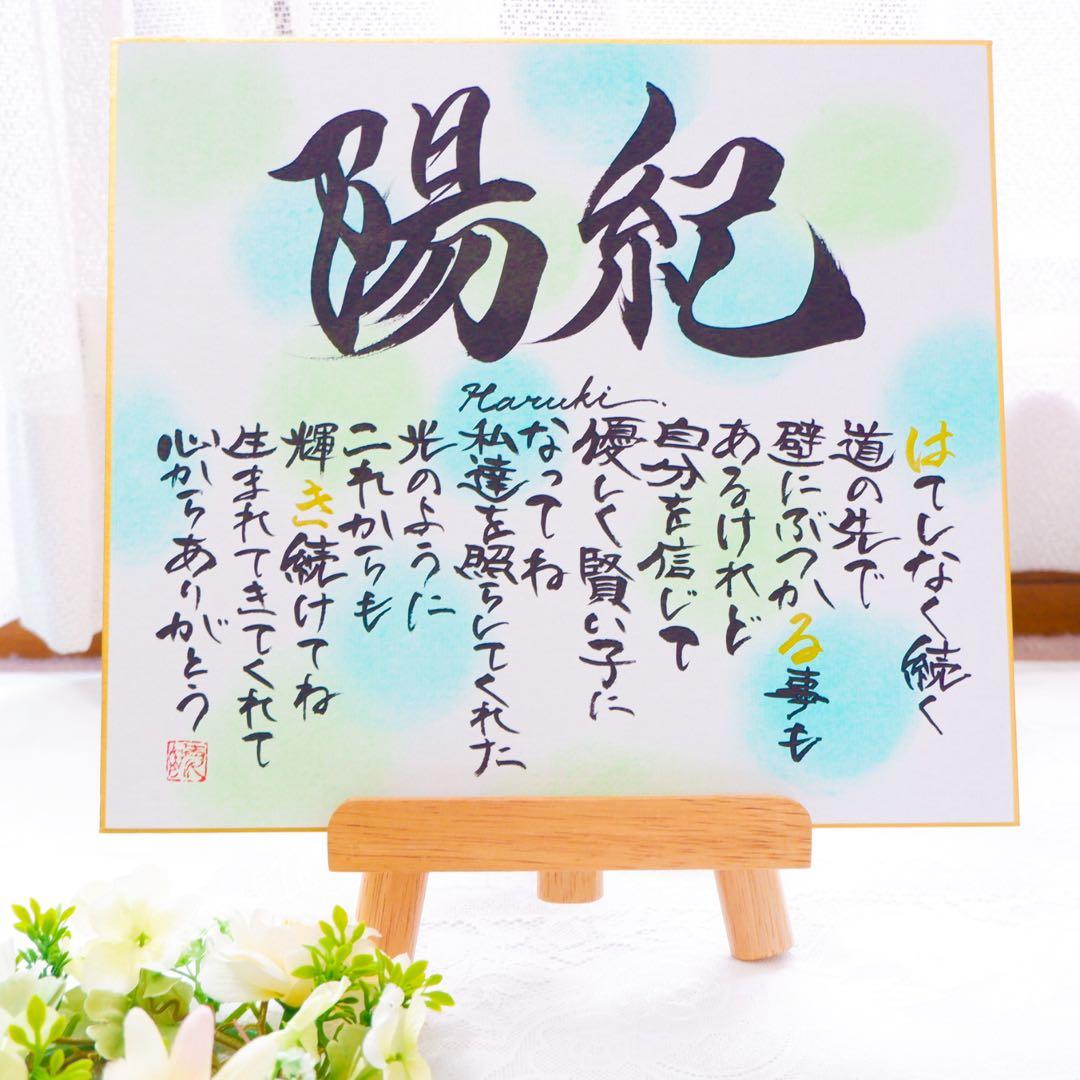 陽紀
Haruki
はてしなく続く
道の先で
壁にぶつかる事も
あるけれど
自分を信じて
優しく賢い子に
なってね
私達を照らしてくれた
光のように
これからも
輝き続けてね
生まれてきてくれて
心からありがとう